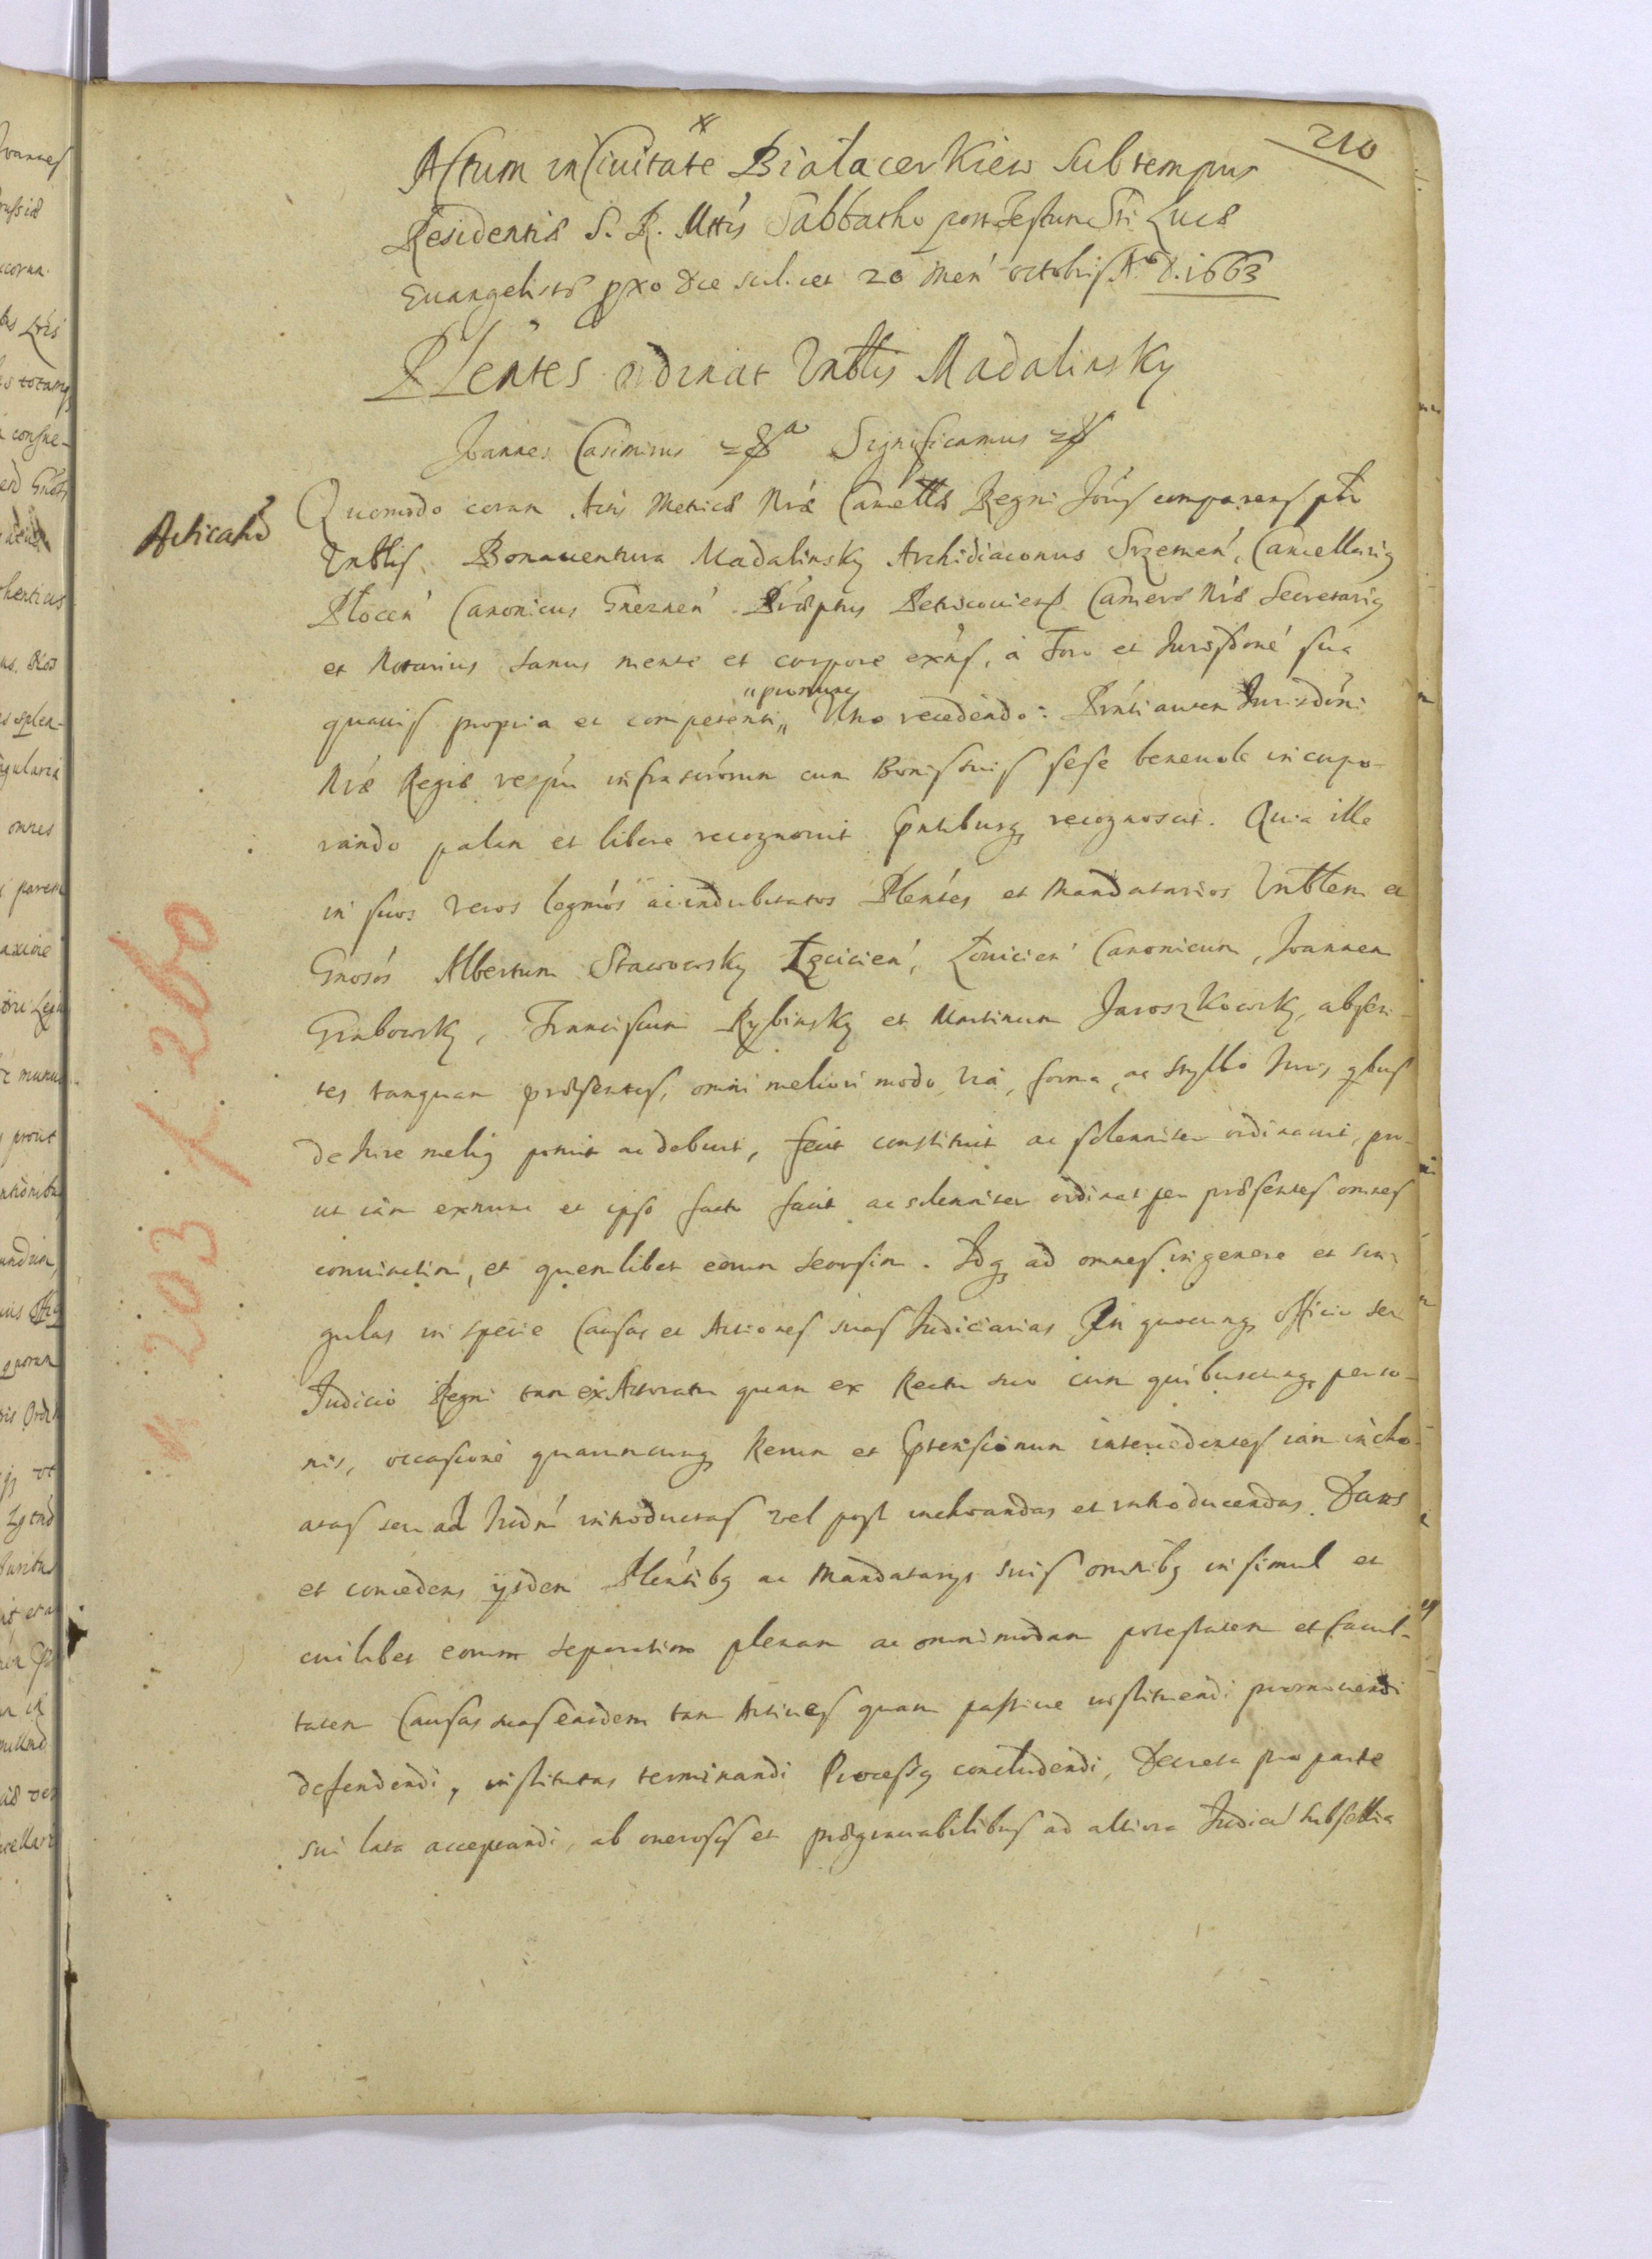 210
Actum in Ciuitate Białacerkiew sub tempus
Residentiæ S. R. Mttis Sabbatho post Festum Sti Lucæ
Euangelistæ pxo die scilicet 20 Men octobris Ao D. 1663
Plentes ordinat Vnblis Madalinsky
Joannes Casimirus Significamus
Quomodo coram Actis Metricæ Nræ Cancellæ Regni Joris comparens
Vnblis Bonauentura Madalinsky Archidiaconus Srzemen, Cancellariꝰ
Płocen Canonicus Gneznen Præptus Petricouien Cameræ Nræ Secretariꝰ
et Notarius sanus mente et corpore exns, à Foro et Jurisdone sua
quauis propria et competenti „ Vno recedendo: Prnti autem Jurisdoni
„pronunc
Nræ Regiæ respu infrascrorum cum Bonis suis sese beneuole incorpo-
rando palam et libere recognouit Pntibusꝗ recognoscit. Quia ille
in suos veros legmos ac indubitatos Plentes et Mandatarios Vnblem et
Gnosos Albertum Stawowsky Łęcicien, Łouicien Canonicum, Joannem
Grabowsky, Franciscum Rybinsky et Martinum Jaroszkowsky, absen-
tes tanquam præsentes, omni meliori modo via, forma, ac stylo Juris, qbus
de Jure meliꝰ potuit ac debuit, fecit constituit ac solenniter ordinauit, pro-
ut iam exnunc et ipso facto facit ac solenniter ordinat per præsentes omnes
coniunctim, et quemlibet eorum seorsim. Idꝗ ad omnes in genere et sin-
gulas in specie Causas et Actiones suas Judiciarias In quocunꝗ officio seu
Judicio Regni tam ex Actoratu quam ex Reatu suo cum quibuscunꝗ perso-
nis, occasione quarumcunꝗ Rerum et Prtensionum intercedentes iam incho-
atas seu ad Judm introductas vel post inchoandas et introducendas. Dans
et concedens ijsdem Plentibꝰ ac Mandatarijs suis omnibꝰ insimul et
cuilibet eorum separatim plenam ac omnimodam potestatem et facul-
tatem Causas suas easdem tam Actiues quam passiue instituendi promouendi
defendendi, institutas terminandi Processꝰ concludendi, Decreta pro parte
sui lata acceptandi, ab onerosis et prægrauabilibus ad altiora Judicia Subsellia
n 203 f 260